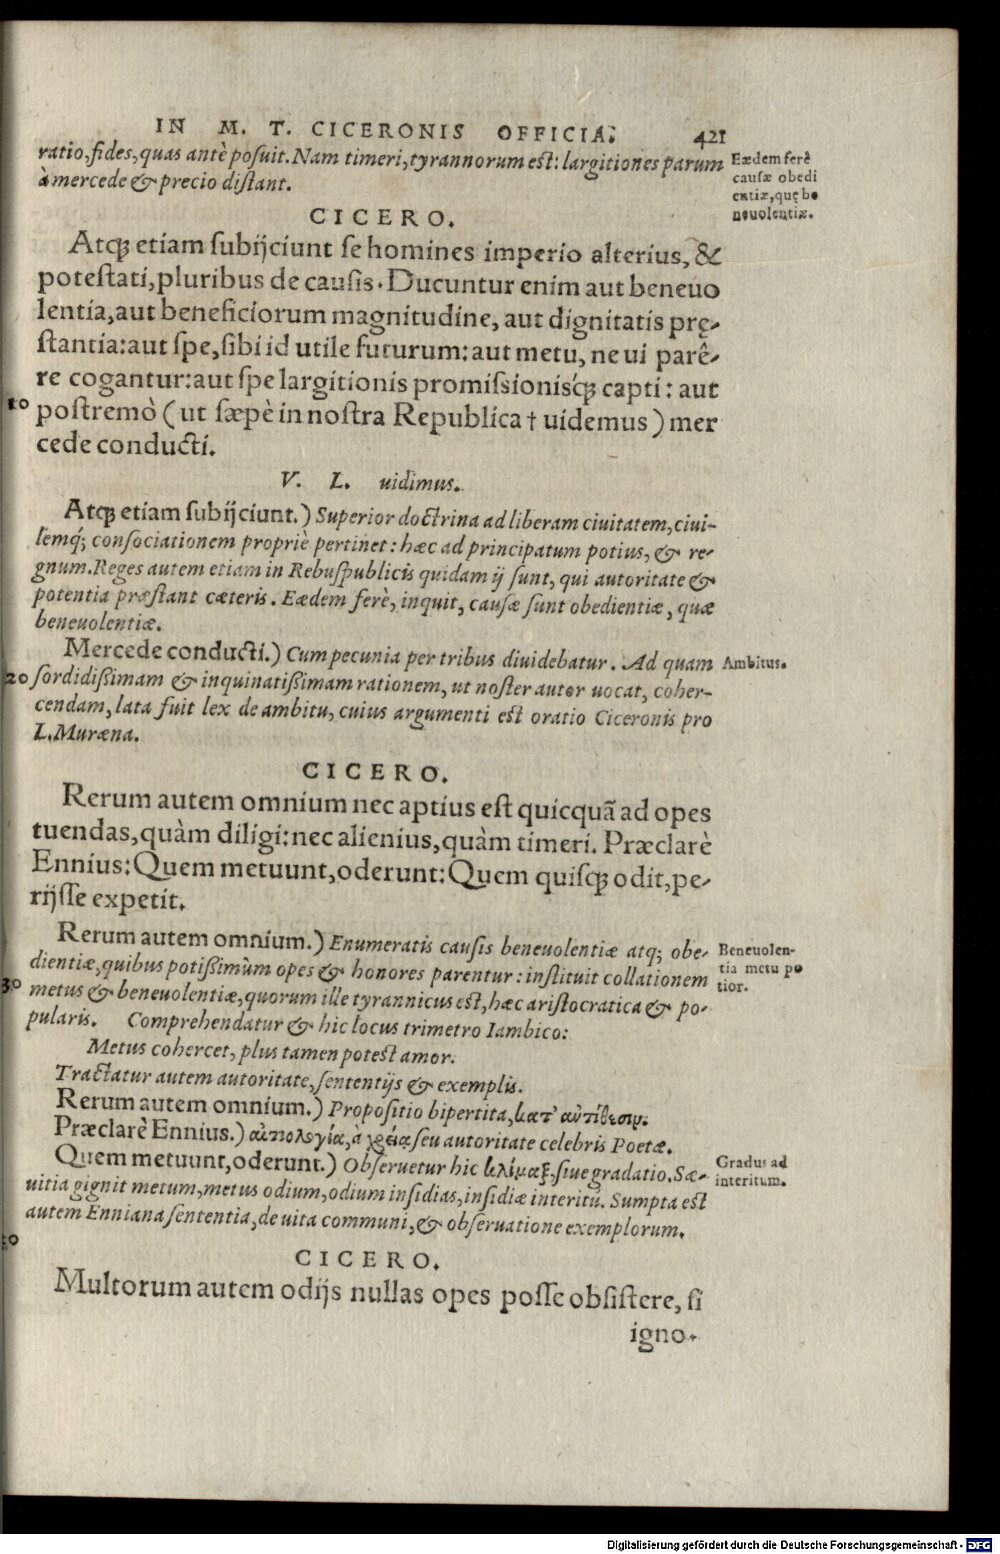 IN M. T. CICERONIS OFFICIA. 421
ratio, fides, quas antè posuit. Nam timeri, tyrannorum est: largitiones parum
à mercede & precio distant.
Eædem ferè
causæ obedi
entiæ, quę be
neuolentiæ.
CICERO.
Atq; etiam subijciunt se homines imperio alterius, &
potestati, pluribus de causis. Ducuntur enim aut beneuo
lentia, aut beneficiorum magnitudine, aut dignitatis prę-
stantia: aut spe, sibi id utile futurum: aut metu, ne ui parê-
re cogantur: aut spe largitionis promissionisq́; capti: aut
10 postremò (ut sæpè in nostra Republica † uidemus) mer
cede conducti.
V. L. uidimus.
Atq; etiam subijciunt.) Superior doctrina ad liberam ciuitatem, ciui-
lemq́; consociationem propriè pertinet: hæc ad principatum potius, & re-
gnum. Reges autem etiam in Rebuspublicis quidam ij sunt, qui autoritate &
potentia præstant cæteris. Eædem ferè, inquit, causæ sunt obedientiæ, quæ
beneuolentiæ.
Mercede conducti.) Cum pecunia per tribus diuidebatur. Ad quam
Ambitus.
20 sordidißimam & inquinatißimam rationem, ut noster autor uocat, coher-
cendam, lata fuit lex de ambitu, cuius argumenti est oratio Ciceronis pro
L. Muræna.
CICERO.
Rerum autem omnium nec aptius est quicquã ad opes
tuendas, quàm diligi: nec alienius, quàm timeri. Præclarè
Ennius: Quem metuunt, oderunt: Quem quisq; odit, pe-
rijsse expetit.
Rerum autem omnium.) Enumeratis causis beneuolentiæ atq; obe-
dientiæ, quibus potißimùm opes & honores parentur: instituit collationem
30 metus & beneuolentiæ, quorum ille tyrannicus est, hæc aristocratica & po-
pularis. Comprehendatur & hic locus trimetro Iambico:
Beneuolen-
tia metu po
tior.
Metus cohercet, plus tamen potest amor.
Tractatur autem autoritate, sententijs & exemplis.
Rerum autem omnium.) Propositio bipertita, κατ' ἀντίθεσιν.
Præclarè Ennius.) αἰτιολογία, à χρείᾳ seu autoritate celebris Poetæ.
Quem metuunt, oderunt.) Obseruetur hic κλίμαξ, siue gradatio. Sæ-
uitia gignit metum, metus odium, odium insidias, insidiæ interitū. Sumpta est
autem Enniana sententia, de uita communi, & obseruatione exemplorum.
Gradus ad
interitum.
40
CICERO.
Multorum autem odijs nullas opes posse obsistere, si
igno-
Digitalisierung gefördert durch die Deutsche Forschungsgemeinschaft - DFG